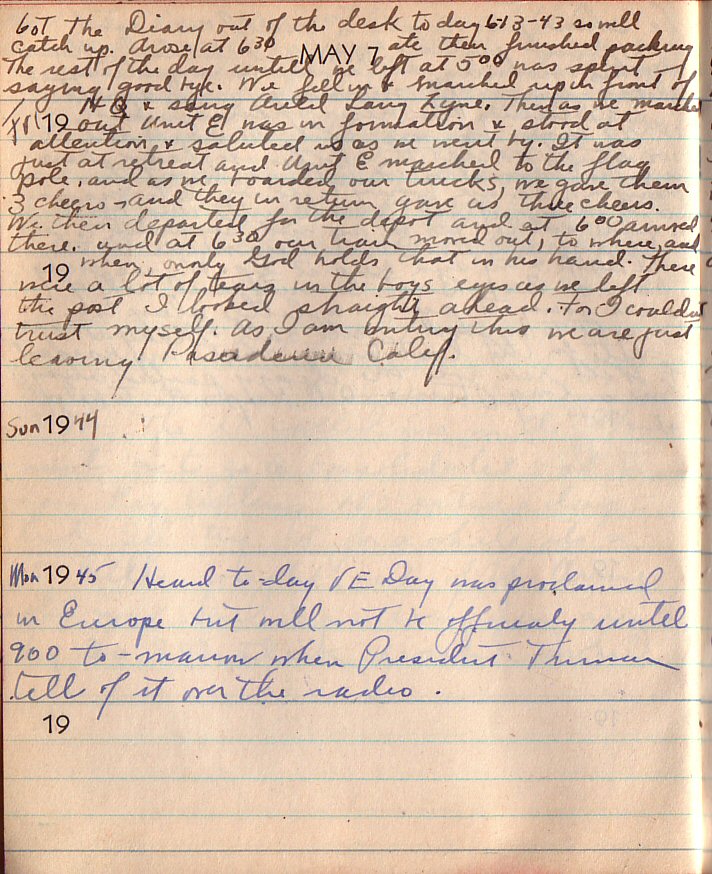 Got The Diary out of the desk to day 6-13-43 so will
catch up. Arose at 6 30 ate then finished packing
MAY 7
The rest of the day untill we left at 5 00 was spent
saying good bye. We fell in & marched up in front of
HQ & sang Auld Lang Zyne. Then as we marched
19 out Unit E was in formation & stood at
attention & saluted us as we went by. It was
just at retreat and Unit E marched to the flag
pole, and as we boarded our trucks, we gave them
3 cheers and they in return gave us three cheers.
We then departed for the depot and at 6 00 arrived
there. and at 6 30 our train moved out, to where, and
19 when, only God holds that in his hand. There
were a lot of tears in the boys eyes as we left
the post I looked straight ahead. For I couldnt
trust myself. As I am entering this we are just
leaving Pasadena Calif.
Sun 19 44
Mon 19 45 Heard to-day VE Day was proclaimed
in Europe but will not be offically until
900 to-morrow when President Truman
tell of it over the radio.
19